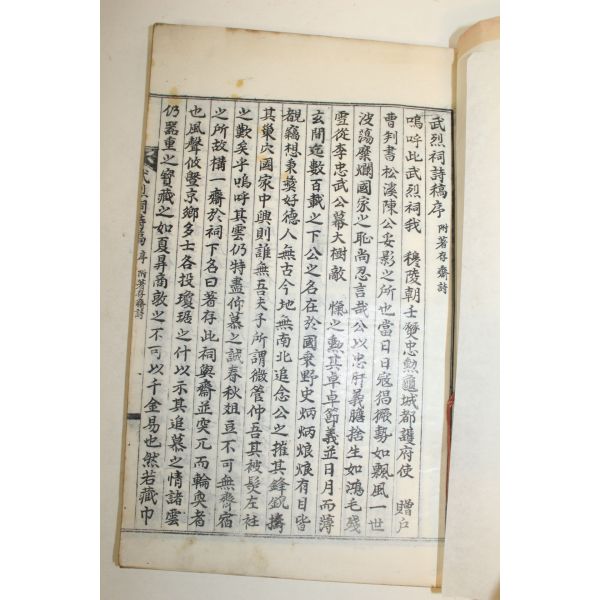 武烈祠詩稿序 附著存齋詩
嗚呼此武烈祠我 穆陵朝壬燹忠勳龜城都護府使 贈户
曹判書松溪陳公妥影之所也當日日寇猖獗勢如飄風一世
波蕩糜爛國家之恥尚忍言哉公以忠肝義膽捨生如鴻毛殘
雪從李忠武公幕大樹敵 愾之勳其卓卓節義並日月而薄
玄間迄數百載之下公之名在於國乘野史炳炳烺烺有目皆
覩竊想秉彛好德人無古今地無南北追念公之摧其鋒銳擣
其巢穴國家中興則誰無吾夫子所謂微管仲吾其被髮左衽
之歎矣乎嗚呼其雲仍特盡仰慕之誠春秋俎豆不可無齋宿
之所故構一齋於祠下名曰著存此祠與齋並突兀而輪奐者
也風聲攸曁京鄉多士各投瓊琚之什以示其追慕之情諸雲
仍嚣重之寶藏之如夏昇商敦之不可以千金易也然若藏巾
武烈祠詩稿 序 附著存齋詩